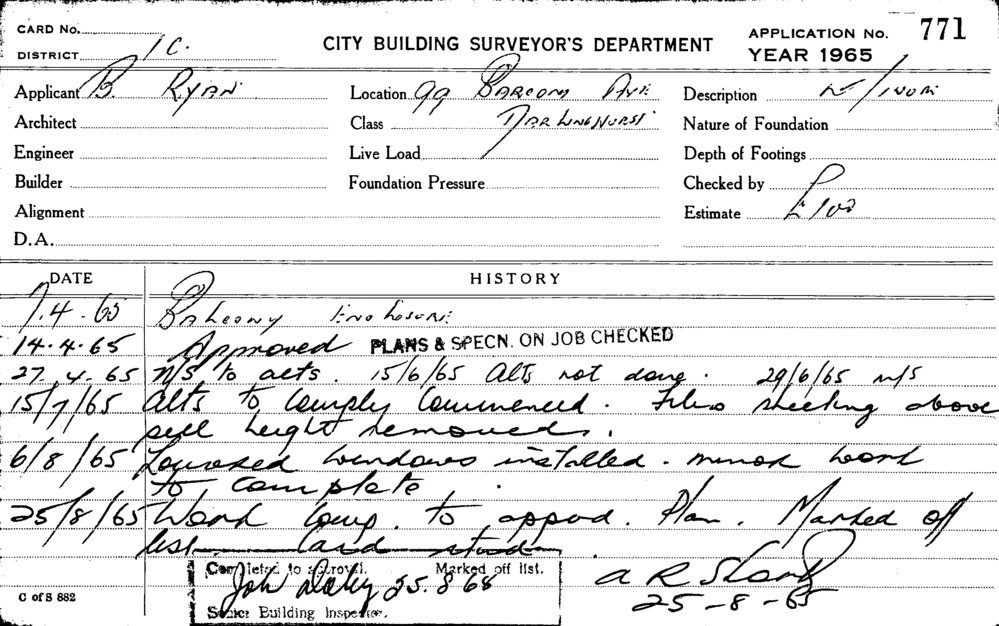 CARD No.
DISTRICT 1C.
CITY BUILDING SURVEYOR'S DEPARTMENT
APPLICATION No. 771
YEAR 1965
Applicant B. RYAN
Location 99 BARCOM AVE
Description
Architect
Class DARLINGHURST
Nature of Foundation
Engineer
Live Load
Depth of Footings
Builder
Foundation Pressure
Checked by
Alignment
Estimate £100
D.A.
DATE HISTORY
7.4.65 Balcony Enclosure
14.4.65 Approved PLANS & SPECN. ON JOB CHECKED
27.4.65 N/S to alts. 15/6/65 Alts not done. 29/6/65 n/s
15/7/65 Alts to Comply Commenced. Fibro sheeting above
sill height removed.
6/8/65 Louvered windows installed. minor work
to complete.
25/8/65 Work Comp. to approd. Plan. Marked off
list
Completed to approval. Marked off list.
25.8.65
Senior Building Inspector.
25-8-65
C of S 882